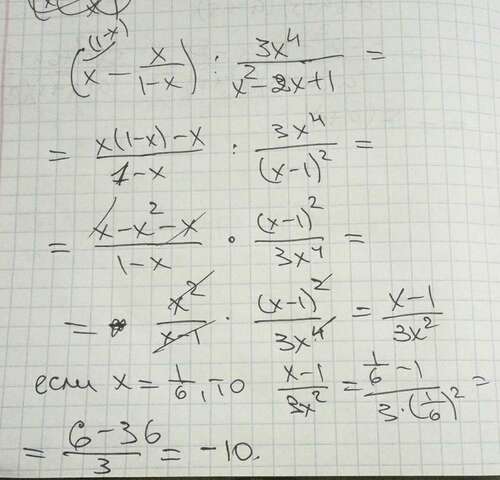 (x - x/(1-x))^(1-x) : 3x⁴/(x²-2x+1) =
= (x(1-x)-x)/(1-x) : 3x⁴/(x-1)² =
= (x-x²-x)/(1-x) · (x-1)²/3x⁴ =
= x²/(x-1) · (x-1)²/3x⁴ = (x-1)/3x²
если x = 1/6, то (x-1)/3x² = (1/6 - 1)/(3·(1/6)²) =
= (6-36)/3 = -10.